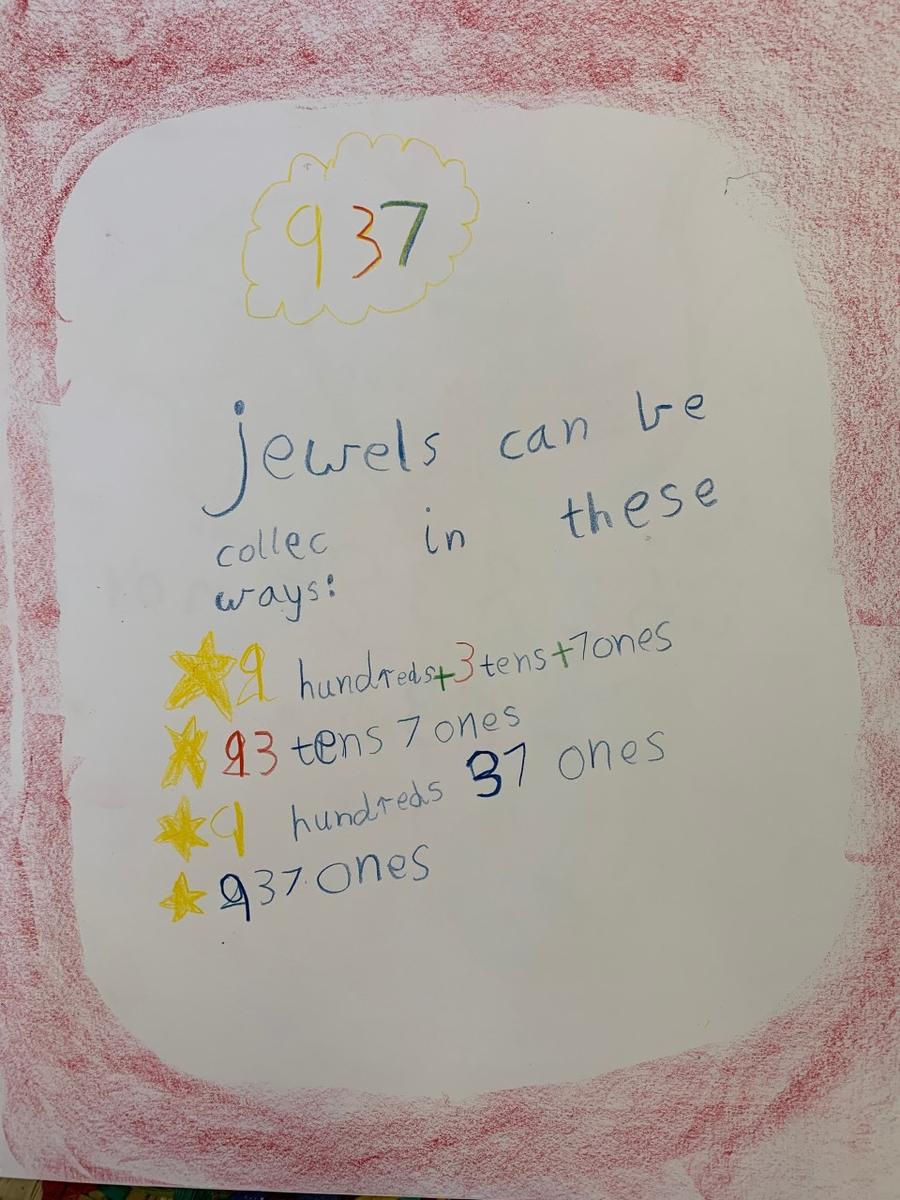 937
jewels can be
collec in these
ways:
9 hundreds+3 tens+7ones
93 tens 7 ones
9 hundreds 37 ones
937 ones